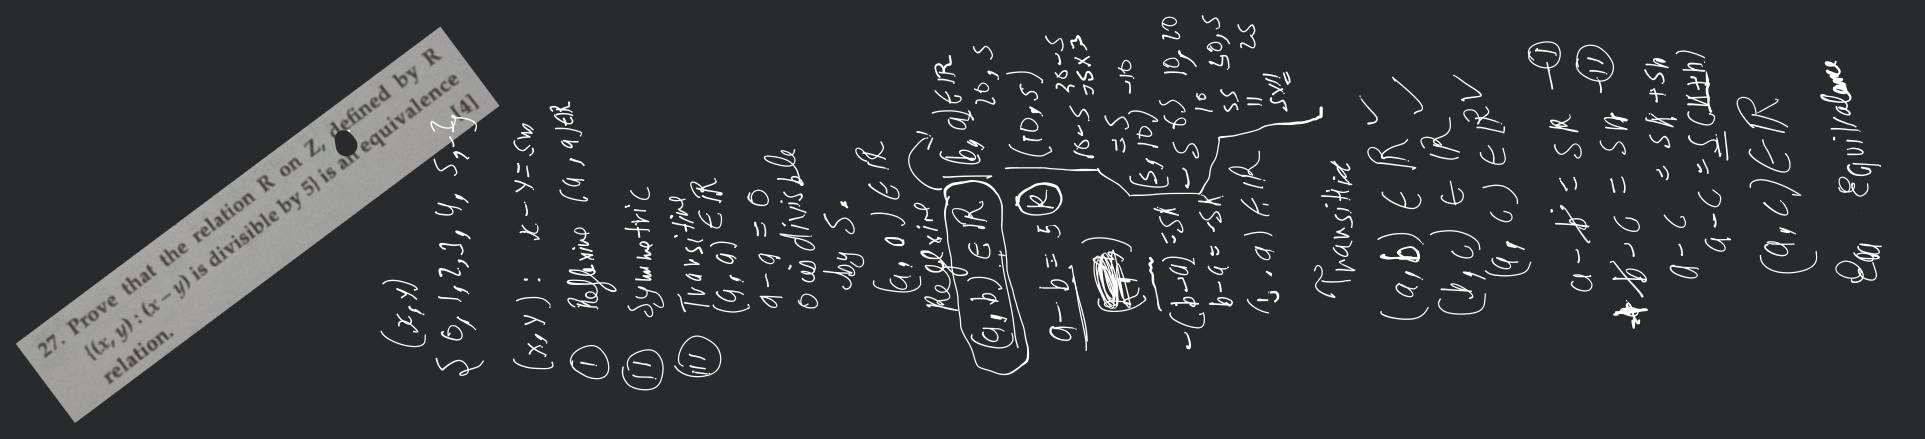 27. Prove that the relation R on Z, defined by R
{(x, y) : (x – y) is divisible by 5} is an equivalence
relation. [4]
(x,y)
{0,1,2,3,4,5,-}
(x,y): x-y=5m
(i) Reflexive (a,a)∈R
(ii) Symmetric
(iii) Transitive
(a,a)∈R
a-a=0
0 is divisible
by 5.
(a,a)∈R
Reflexive
(a,b)∈R (b,a)∈R
20,5
a-b=5(k) (10,5)
10-5
=5
(5,10)
-5
-(b-a)=5k
b-a=-5k
(b,a)∈R
Transitive
(a,b)∈R
(b,c)∈R
(a,c)∈R
a-b=5k -(i)
b-c=5h (ii)
a-c=5k+5h
a-c=5(k+h)
(a,c)∈R
Equivalance